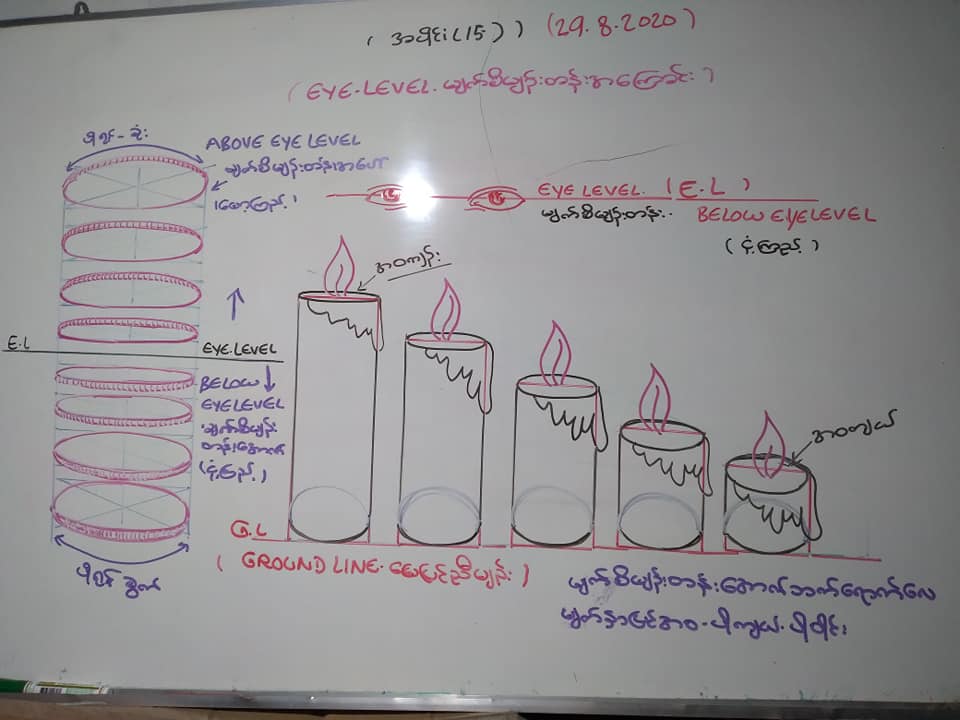 ( အပိုင်း (၁၅) ) (29.8.2020)
( EYE.LEVEL. မျက်စိမျဉ်းတန်းအကြောင်း )
ပို၍-ဝိုင်း
ABOVE EYE LEVEL
မျက်စိမျဉ်းတန်းအပေါ်
(မော့ကြည့်)
EYE LEVEL. (E.L)
မျက်စိမျဉ်းတန်း..
BELOW EYELEVEL
(ငုံ့ကြည့်)
အဝကျဉ်း
E.L
EYE.LEVEL
BELOW
EYELEVEL
မျက်စိမျဉ်း
တန်းအောက်
(ငုံ့ကြည့်)
အဝကျယ်
G.L
( GROUND LINE. မြေပြင်ညီမျဉ်း )
မျက်စိမျဉ်းတန်းအောက်ဘက်ရောက်လေ
မျက်နှာပြင်အဝ-ပိုကျယ်.ပိုဝိုင်း